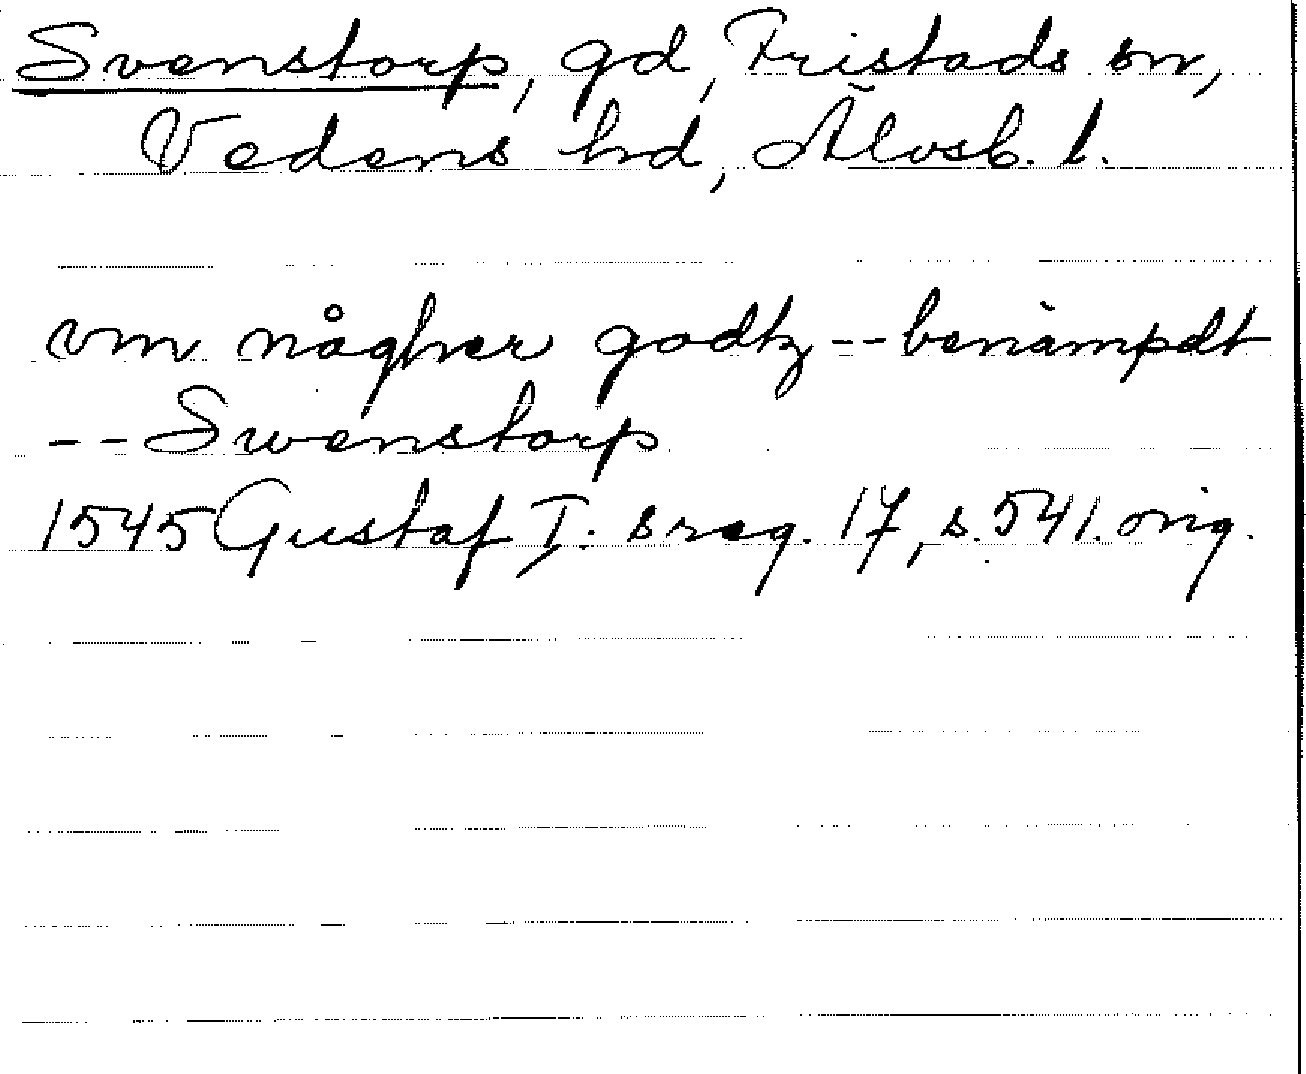 Svenstorp, gd, Fristads sn,
Vedens hd, Älvsb. l.
vm någher godtz -- benämpdt
-- Swenstorp
1545 Gustaf I: s reg. 17, s. 541. orig.